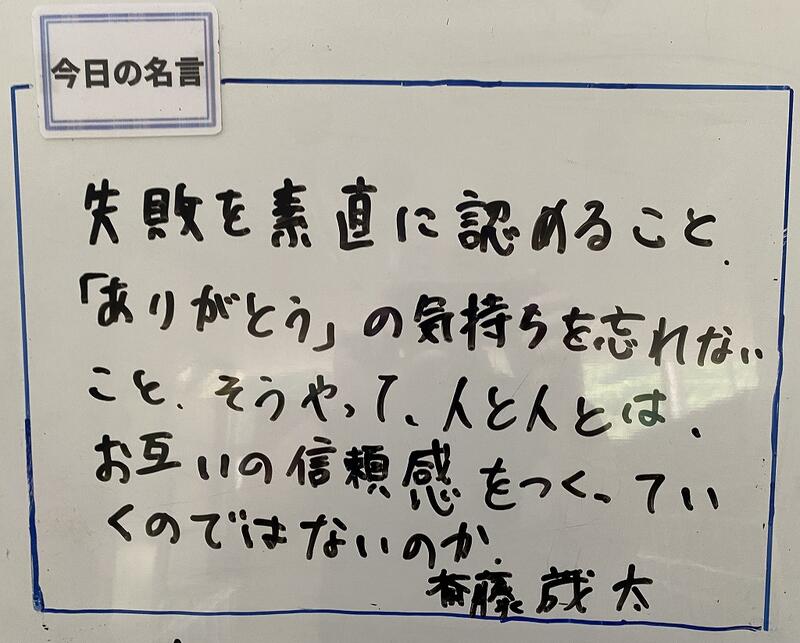 今日の名言
失敗を素直に認めること、
「ありがとう」の気持ちを忘れない
こと、そうやって、人と人とは、
お互いの信頼感をつくってい
くのではないのか。
斎藤茂太